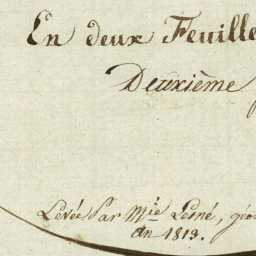 En deux Feuille
Deuxième
Levée Par Mie Lesné, géo
an 1813.